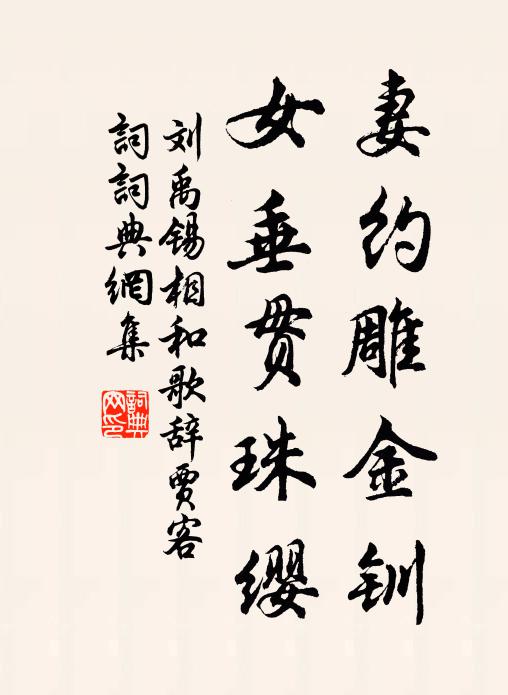 妻约雕金钏
女垂贯珠缨
刘禹锡相和歌辞贾客
词词典網集
詞典
网印